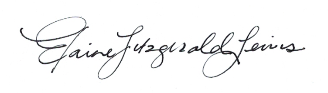 Elaine Fitzgerald Lewis